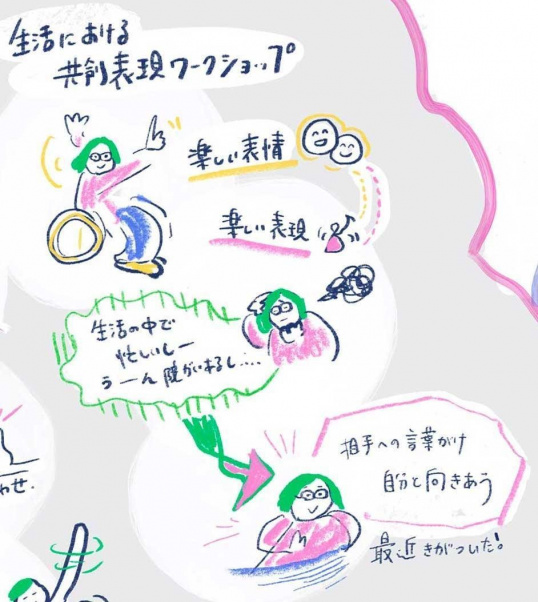 生活における
共創表現ワークショップ
楽しい表情
楽しい表現
生活の中で
忙しいしー
うーん 障がいあるし……
相手への言葉がけ
自分と向きあう
最近きがついた!
わせ.